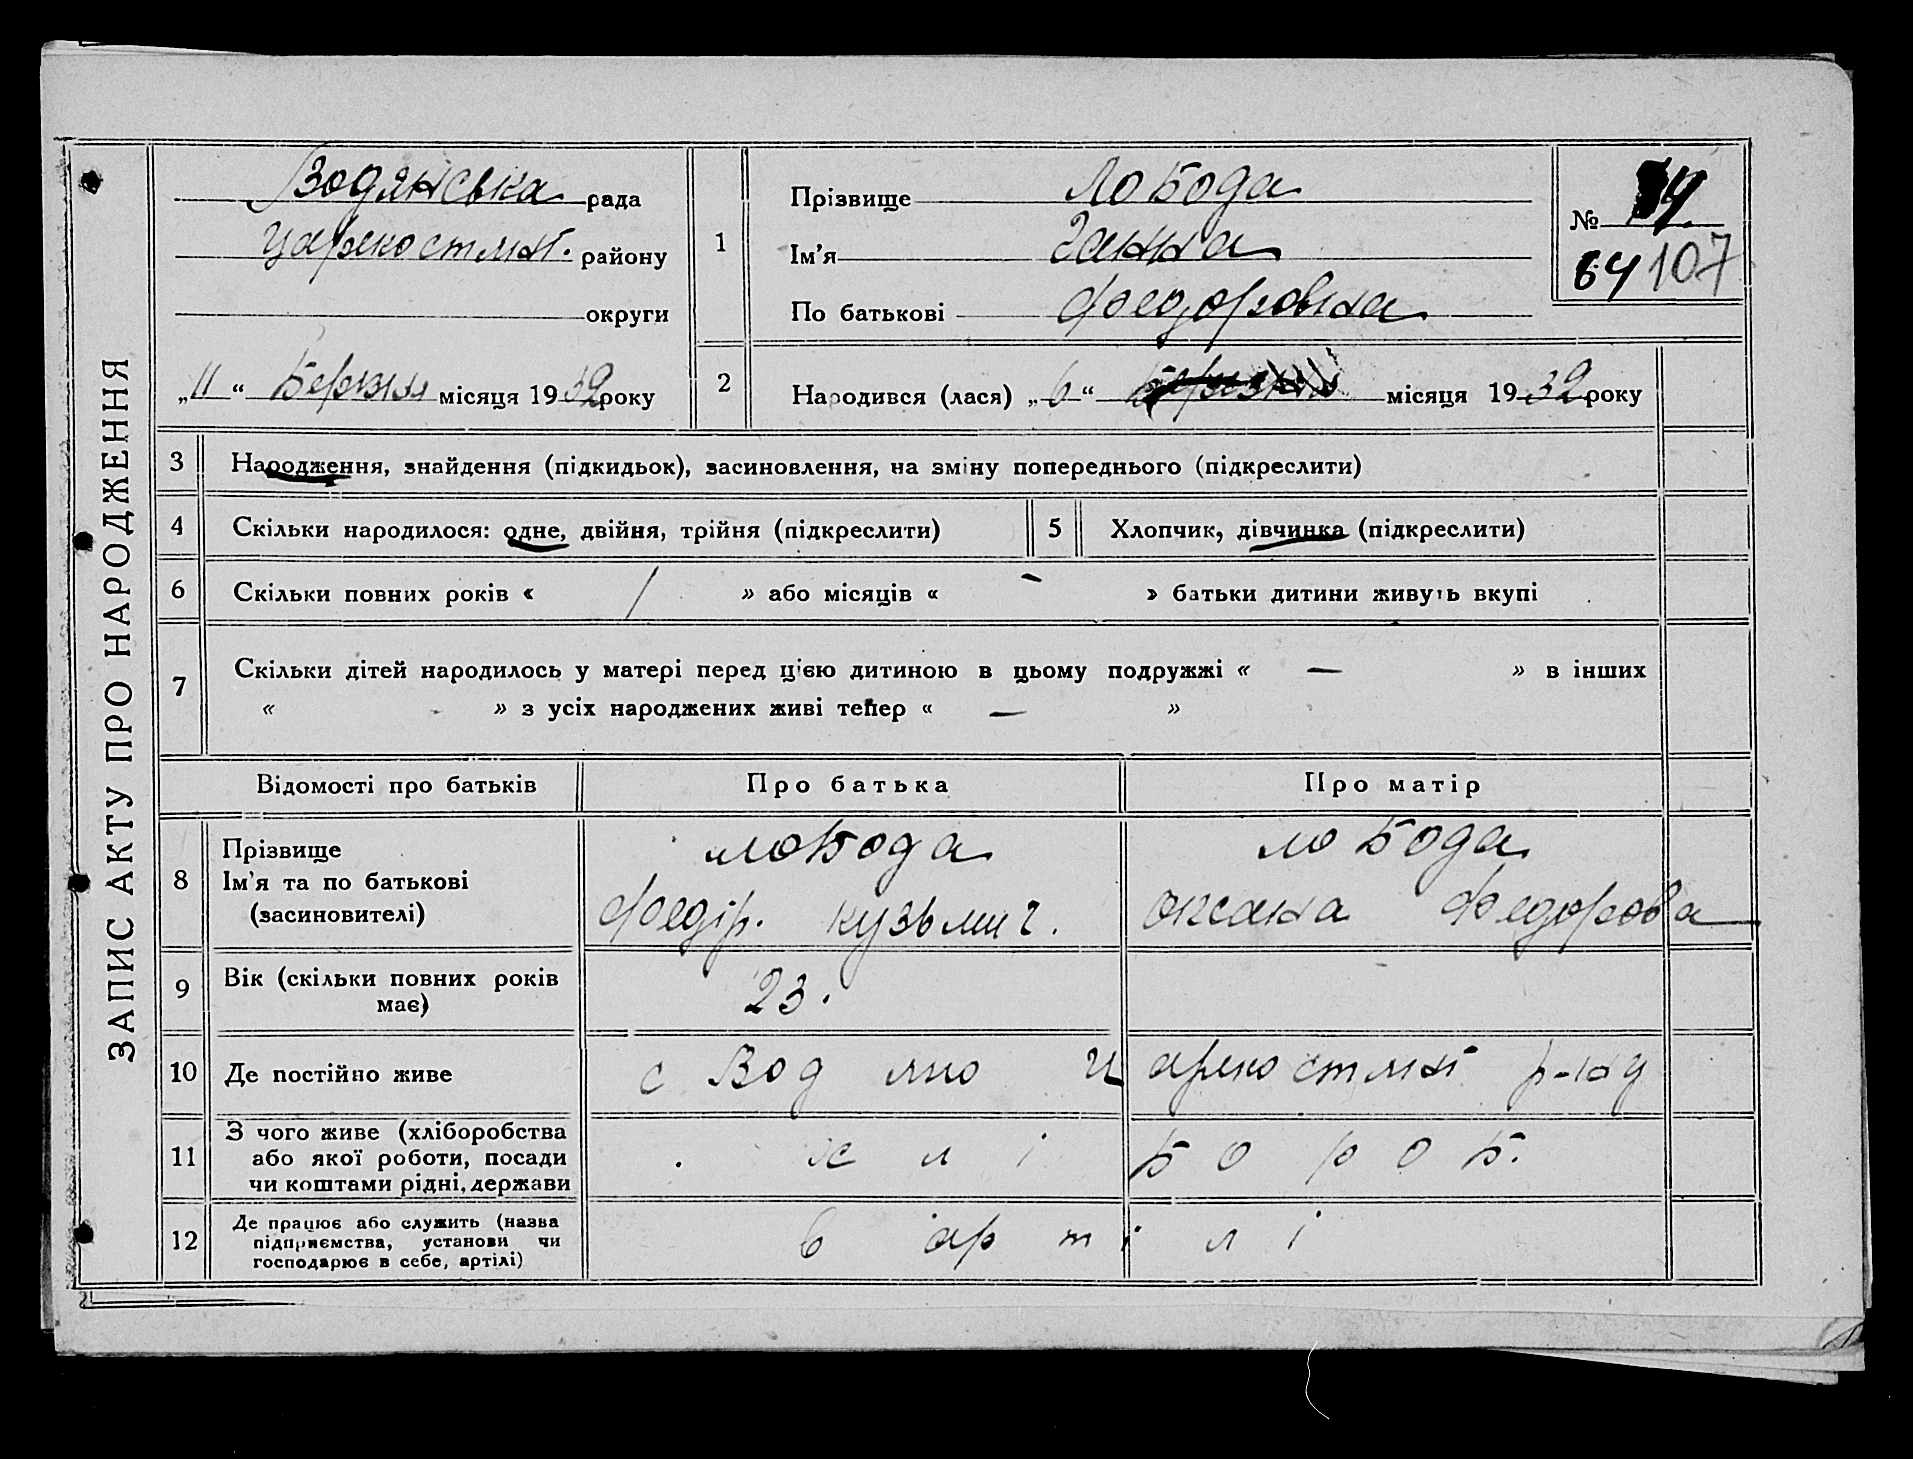 ЗАПИС АКТУ ПРО НАРОДЖЕННЯ
Водянська рада
району
округи
„11“ Березня місяця 1932 року
1
Прізвище Лобода
Ім'я Ганна
По батькові Федоровна
№ 
64 107
2
Народився (лася) „6“ березня місяця 1932 року
3 Народження, знайдення (підкидьок), засиновлення, на зміну попереднього (підкреслити)
4 Скільки народилося: одне, двійня, трійня (підкреслити)
5 Хлопчик, дівчинка (підкреслити)
6 Скільки повних років « / » або місяців « - » батьки дитини живуть вкупі
7 Скільки дітей народилось у матері перед цією дитиною в цьому подружжі « — » в інших
« - » з усіх народжених живі тепер « — »
Відомості про батьків Про батька Про матір
8 Прізвище
Ім'я та по батькові
(засиновителі)
Лобода
Федір. Кузьмич.
Лобода
Оксана Федорова
9 Вік (скільки повних років
має)
23.
10 Де постійно живе
с Водяно р-на
11 З чого живе (хліборобства
або якої роботи, посади
чи коштами рідні, держави
хлібороб.
12 Де працює або служить (назва
підприємства, установи чи
господарює в себе, артілі)
в артілі